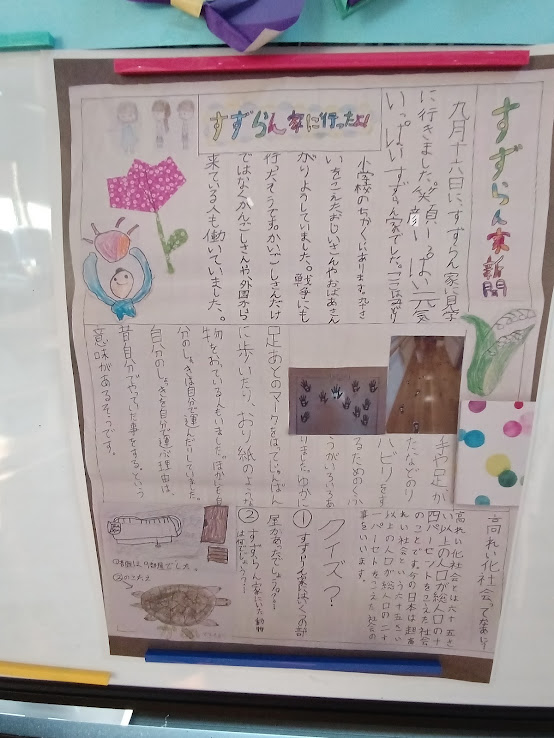 すずらん家新聞
九月十六日に、すずらん家に見学
に行きました。笑顔いっぱい元気
いっぱいすずらん家でした。
すずらん家に行ったよ！
小学校のちかくにあります。
いをこえたおじいさんやおばあさん
がりようしていました。戦争にも
行ったそうです。かいごしさんだけ
ではなくかんごしさんや、外国から
来ている人も働いていました。
手や足が
などのリ
ハビリをす
るための
うがいろいろあ
りました。ゆかに
足あとのマークをはってじゅんばん
に歩いたり、おり紙のような
物をおっている人もいました。ほかにも自
分のしょっきは自分で運んだりしていました。
自分のしょっきを自分で運ぶ理由は、
昔自分でやっていた事をする、という
意味があるそうです。
高れい化社会ってなあに？
高れい化社会とは六十五さ
い以上の人口が総人口の十
四パーセントをこえた社会
のことです。今の日本は超高
れい社会という六十五さい
以上の人口が総人口の二十
一パーセントをこえた社会の
事をいいます。
クイズ？
①すずらん家にはいくつの部
屋があったでしょうか？
②すずらん家にいた動物
は何でしょうか？
部屋でした。
②のこたえ